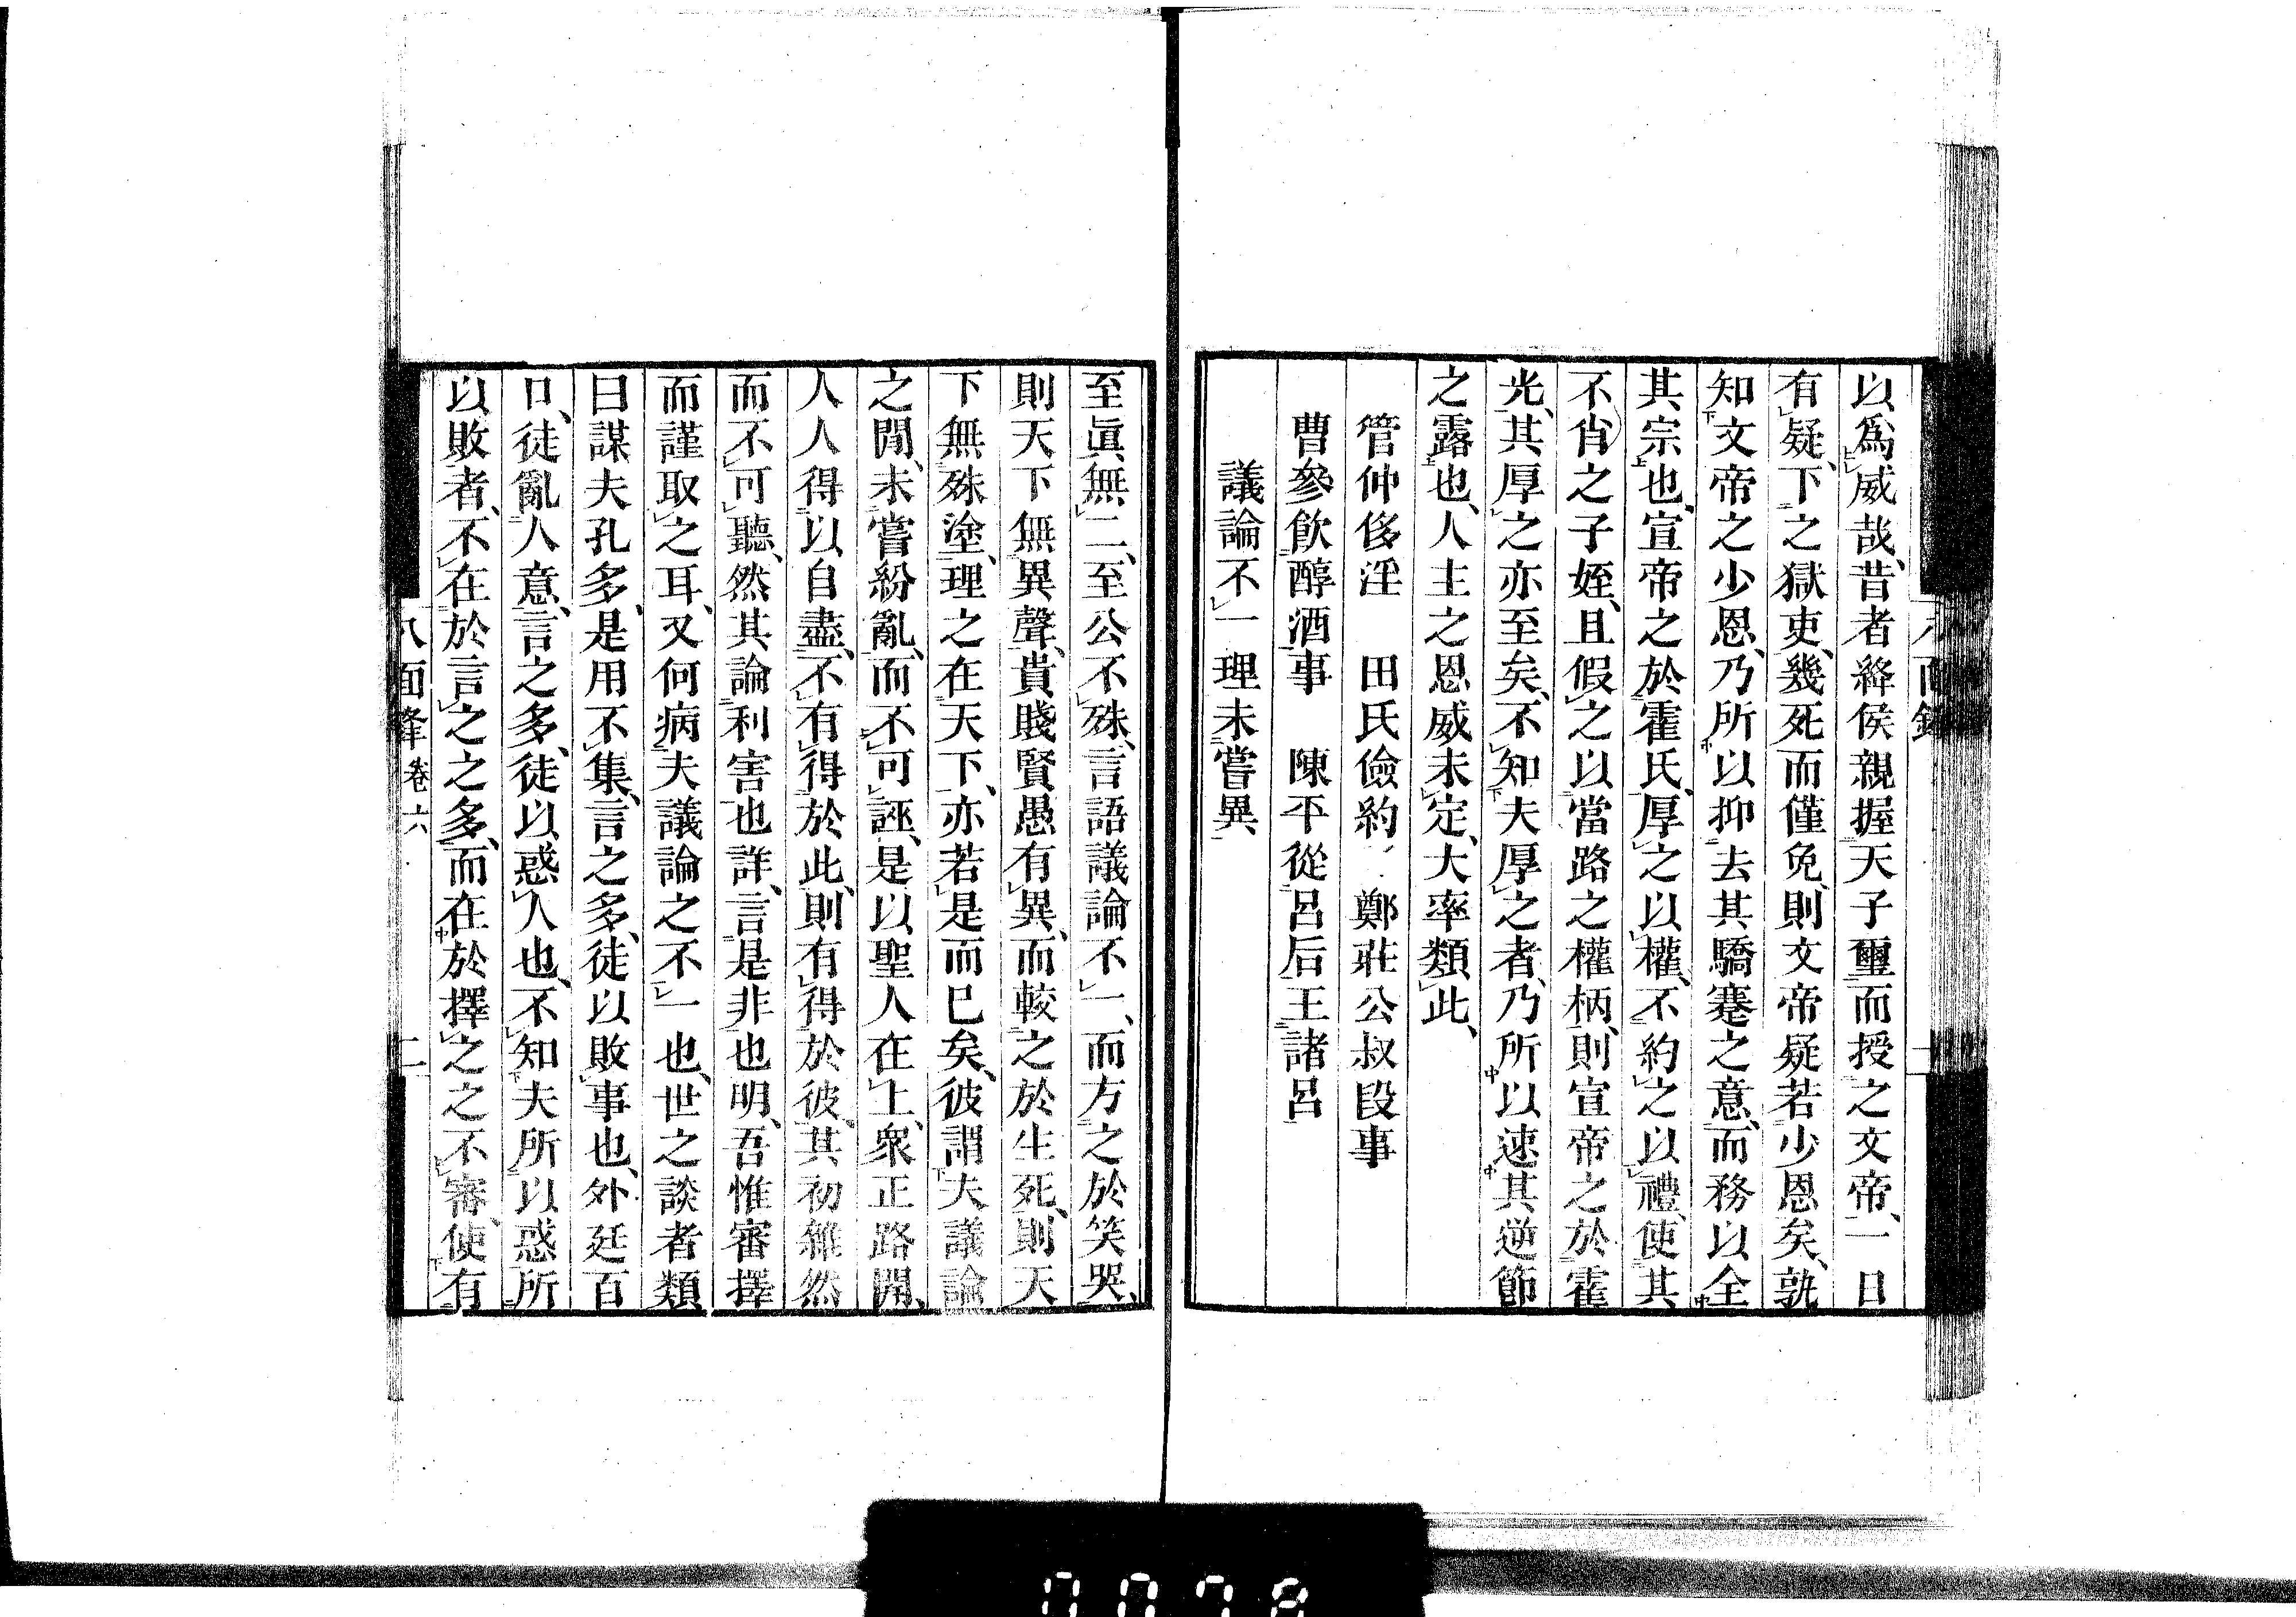 以爲威哉、昔者絳侯親握天子璽而授之文帝、一日
有疑、下之獄吏、幾死而僅免、則文帝疑若少恩矣、孰
知文帝之少恩、乃所以抑去其驕蹇之意、而務以全
其宗也、宣帝之於霍氏、厚之以權、不約之以禮、使其
不肖之子姪、且假之以當路之權柄、則宣帝之於霍
光、其厚之亦至矣、不知夫厚之者、乃所以速其逆節
之露也、人主之恩威未定、大率類此、
管仲侈淫　田氏儉約　鄭莊公叔段事
曹參飮醇酒事　陳平從呂后王諸呂
議論不一理未嘗異
至眞無二、至公不殊、言語議論不一、而方之於笑哭、
則天下無異聲、貴賤賢愚有異、而較之於生死、則天
下無殊塗、理之在天下、亦若是而已矣、彼謂夫議論
之閒、未嘗紛亂、而不可誣、是以聖人在上、衆正路開、
人人得以自盡、不有得於此、則有得於彼、其初雜然
而不可聽、然其論利害也詳、言是非也明、吾惟審擇
而謹取之耳、又何病夫議論之不一也、世之談者類
曰謀夫孔多、是用不集、言之多、徒以敗事也、外廷百
口、徒亂人意、言之多、徒以惑人也、不知夫所以惑所
以敗者、不在於言之之多、而在於擇之之不審、使有
八面鋒 卷六 二